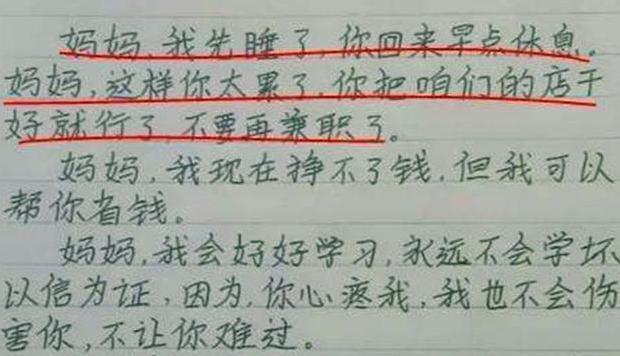 妈妈,我先睡了,你回来早点休息。
妈妈,这样你太累了,你把咱们的店干
好就行了,不要再兼职了。
妈妈,我现在挣不了钱,但我可以
帮你省钱。
妈妈,我会好好学习,永远不会学坏
以信为证,因为,你心疼我,我也不会伤
害你,不让你难过。